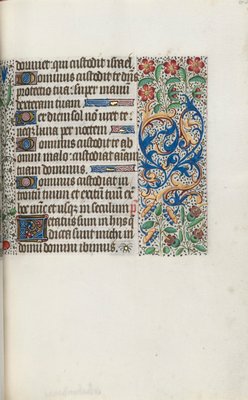 dormiet: qui custodit israel
Dominus custodit te dñs
protectio tua: super manũ
dexteram tuam
Per diem sol nõ uret te
neqz luna per noctem
Dominus custodit te ab
omni malo: custodiat aĩam
tuam dominus
Dominus custodiat in
troitũ tuum et exitũ tuũ ex
hoc nũc et usqz in seculum
Letatus sum in hiis q̃
dicta sunt michi: in
domũ domini ibimus